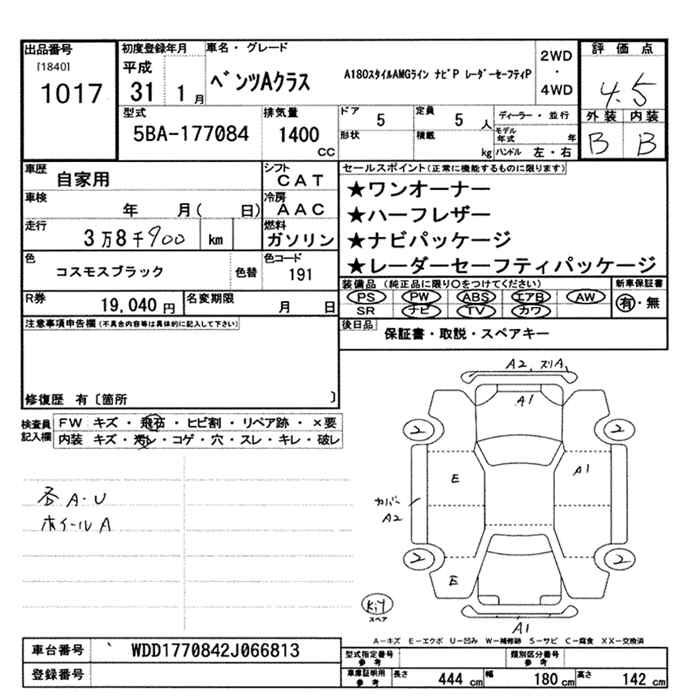 出品番号
[1840]
1017
初度登録年月
平成
31 1月
車名・グレード
ベンツAクラス
A180スタイルAMGライン ナビP レーダーセーフティP
2WD
・
4WD
評価点
4.5
外装 内装
B B
型式
5BA-177084
排気量
1400
cc
ドア 5
定員 5人
形状
積載 kg
ディーラー・並行
モデル年式 年
ハンドル 左・右
車歴
自家用
シフト
CAT
車検
年 月( 日)
冷房
AAC
走行
3万8千900 km
燃料
ガソリン
色
コスモスブラック
色替
色コード
191
R券
19,040円
名変期限
月 日
セールスポイント(正常に機能するものに限ります)
★ワンオーナー
★ハーフレザー
★ナビパッケージ
★レーダーセーフティパッケージ
装備品(純正品に限り○をつけてください)
PS PW ABS エアB AW
SR ナビ TV カワ
新車保証書
有・無
後日品
保証書・取説・スペアキー
注意事項申告欄(不具合内容等は具体的に記入して下さい)
修復歴 有〔箇所 〕
検査員
記入欄
FW キズ・飛石・ヒビ割・リペア跡・×要
内装 キズ・汚レ・コゲ・穴・スレ・キレ・破レ
各A・U
ホイールA
A2 スリA
A1
2
2
E
A1
カバー
A2
2
2
E
Kiy
スペア
A1
A-キズ E-エクボ U-凹み W-補修跡 S-サビ C-腐食 XX-交換済
車台番号
WDD1770842J066813
登録番号
型式指定番号
参考
類別区分番号
参考
車庫証明用
参考
長さ 444 cm
幅 180 cm
高さ 142 cm